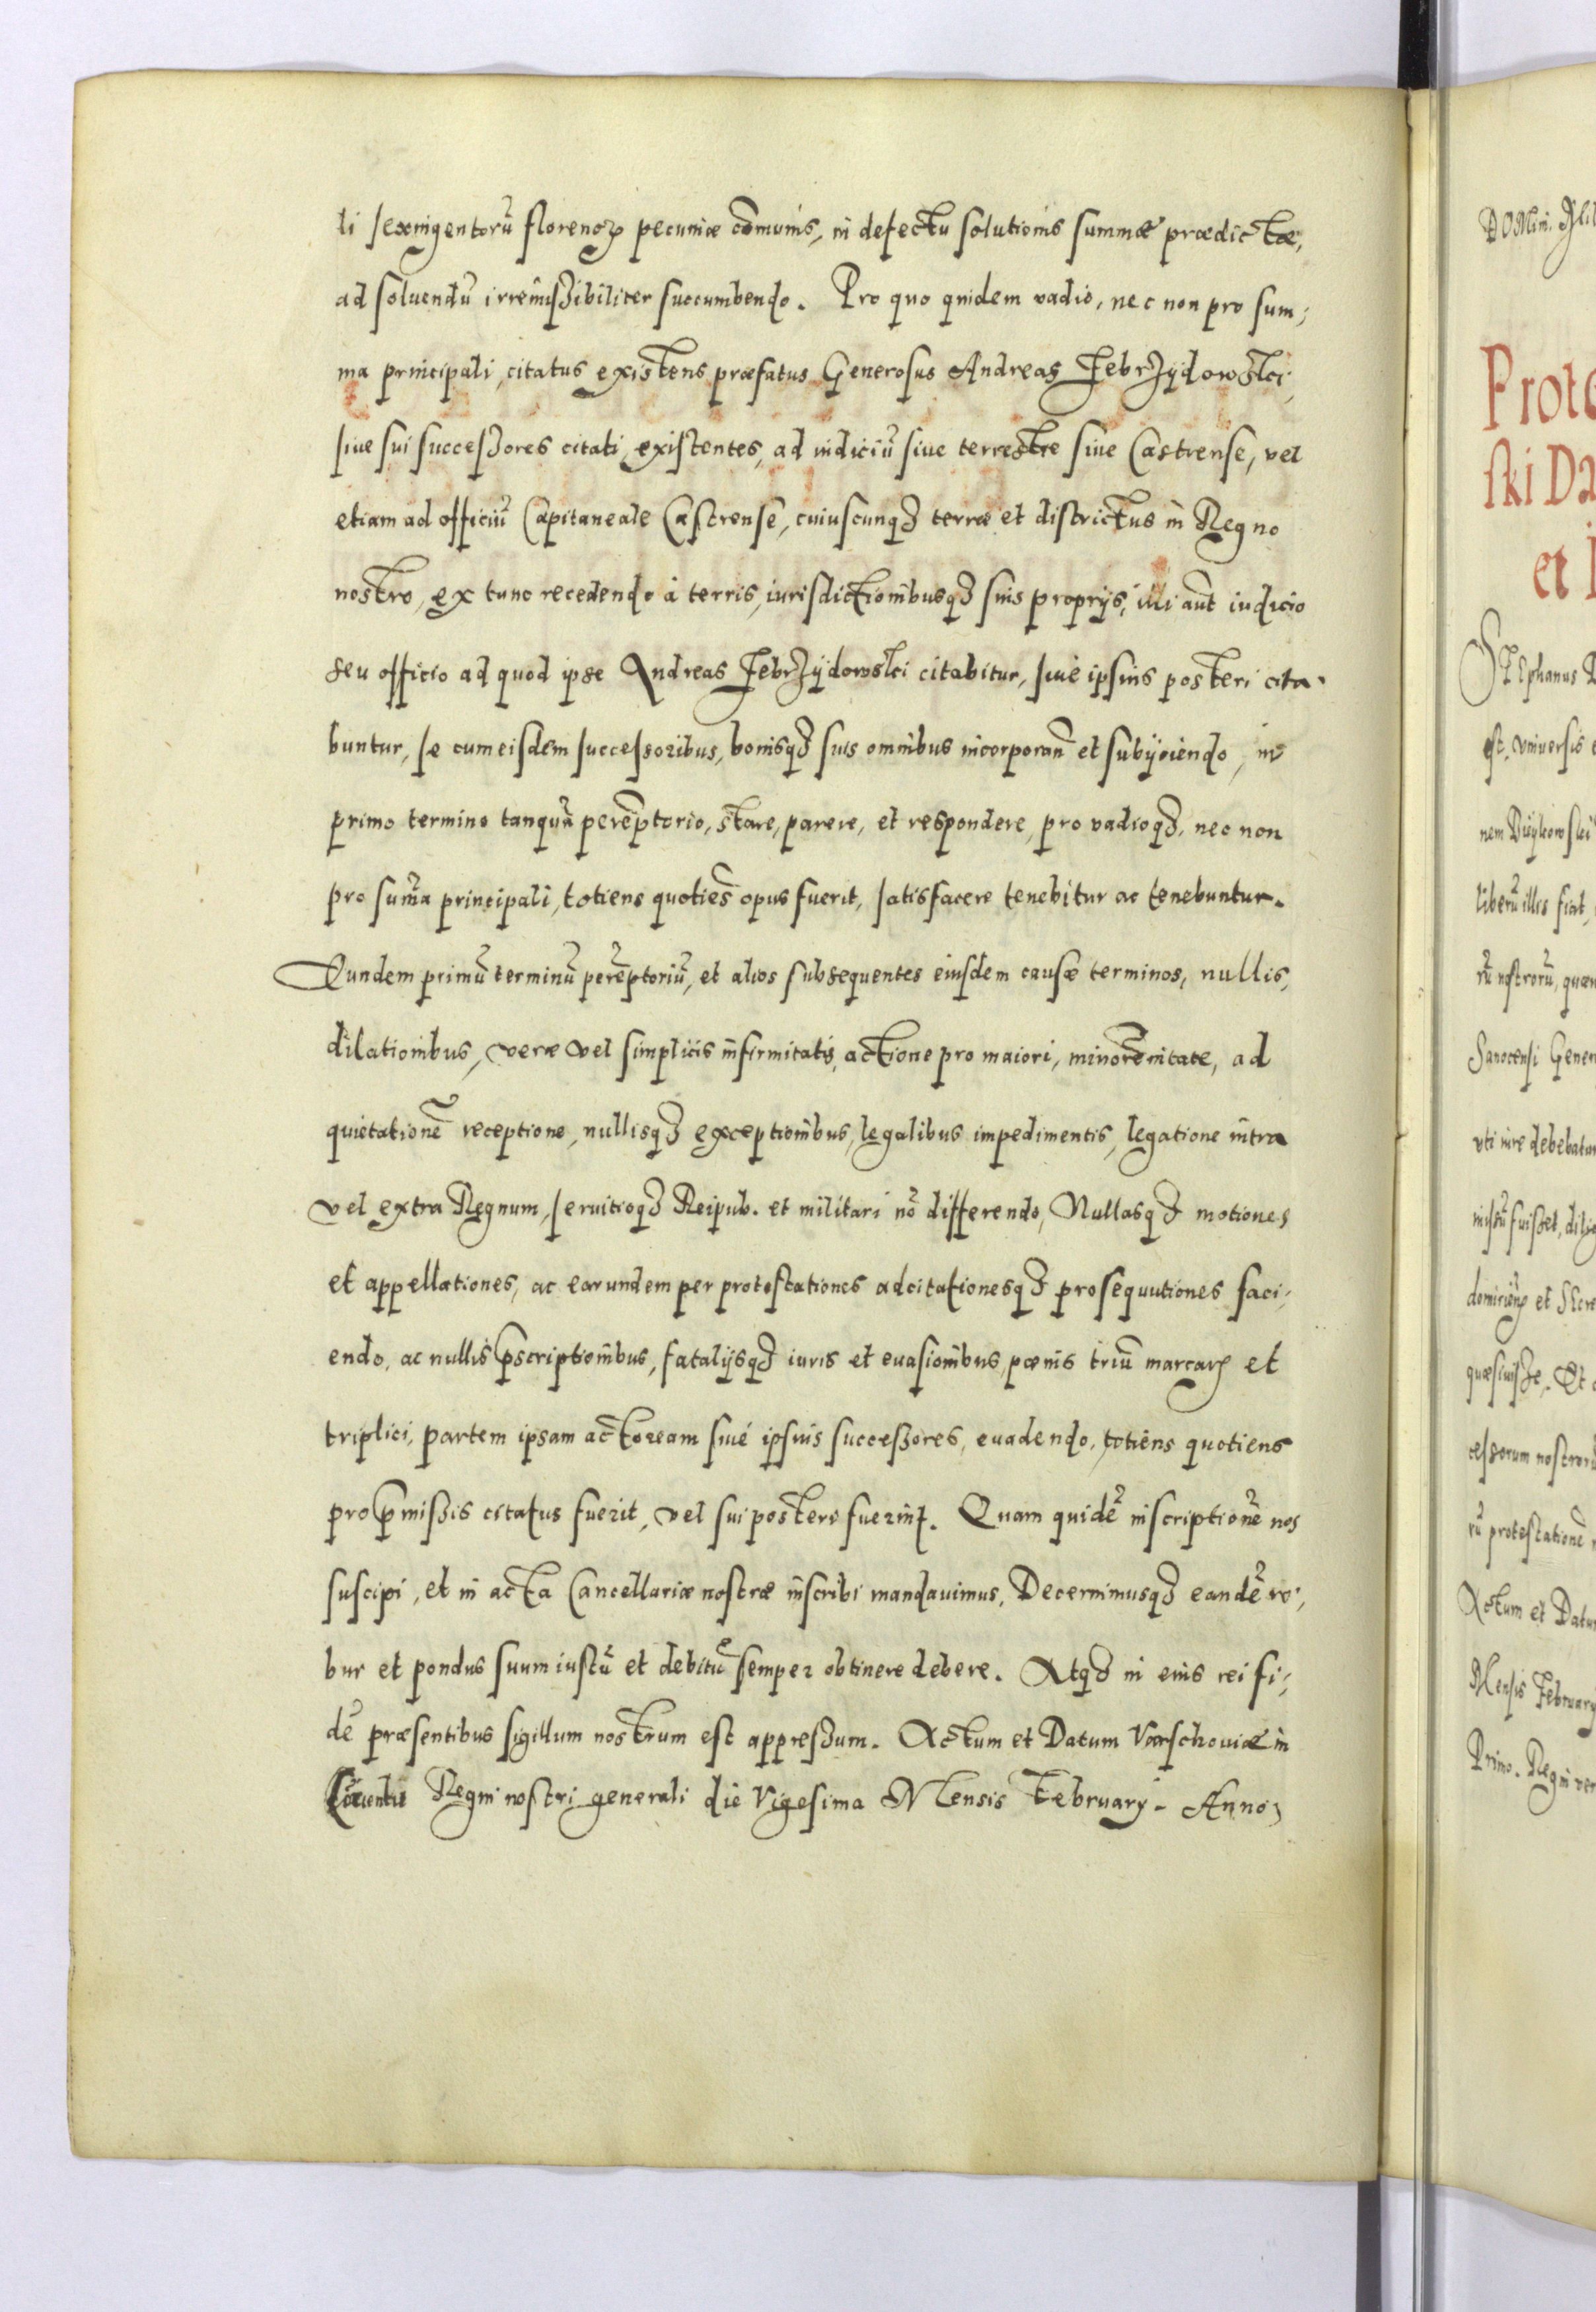 li sexingentorũ florenoꝝ pecuniæ cõmunis, in defectu solutionis summæ prædictæ,
ad soluendũ irremissibiliter succumbendo. Pro quo quidem vadio, nec non pro sum,
ma principali, citatus existens præfatus Generosus Andreas Febrzÿdowski,
siue sui successores citati existentes, ad iudiciũ siue terrestre siue Castrense, vel
etiam ad officiũ Capitaneale Castrense, cuiuscunqꝫ terræ et districtus in Regno
nostro, ex tunc recedendo à terris, iurisdictionibusqꝫ suis proprijs, illi aũt iudicio
seu officio ad quod ipse Andreas Febrzÿdowski citabitur, siue ipsius posteri cita,
buntur, se cum eisdem successoribus, bonisqꝫ suis omnibus incorporañ et subijciendo, in
primo termino tanquã perẽptorio, stare, parere, et respondere, pro vadioqꝫ, nec non
pro sum̃a principali, totiens quoties opus fuerit, satisfacere tenebitur ac tenebuntur.
Eundem primũ terminũ perẽptoriũ, et alios subsequentes eiusdem causæ terminos, nullis,
dilationibus, veræ vel simplicis infirmitatis, actione pro maiori, minorẽnitate, ad
quietationẽ receptione, nullisqꝫ exceptionibus, legalibus impedimentis, legatione intra
vel extra Regnum, seruitioqꝫ Reipub. et militari nõ differendo, Nullasqꝫ motiones
et appellationes, ac earundem per protestationes adcitationesqꝫ prosequutiones faci,
endo, ac nullis p̃scriptionibus, fatalijsqꝫ iuris et euasionibus, pœnis triũ marcarꝝ et
triplici, partem ipsam actoream siué ipsius successores, euadendo, totiens quotiens
pro p̃missis citatus fuerit, vel sui posteri fuerint. Quam quidẽ inscriptionẽ nos
suscipi, et in acta Cancellariæ nostræ inscribi mandauimus, Decernimusqꝫ eandẽ ro,
bur et pondus suum iustũ et debitũ semper obtinere debere. Atqꝫ in eius rei fi,
dẽ præsentibus sigillum nostrum est appressum. Actum et Datum Varschouiæ in
Conuentu Regni nostri generali die Vigesima Mensis February. Anno
DOMini
Prote
ski Da
et
STEphanus
est, Vniuersis
liberũ illis fiat,
rũ nostrorũ, quæ
Sanocensi Gener
vti iure debebatur
quæsiuisse. Et
cessorum nostrorũ
rũ protestationẽ
Actum et Datu
Mensis February
Primo. Regni ver